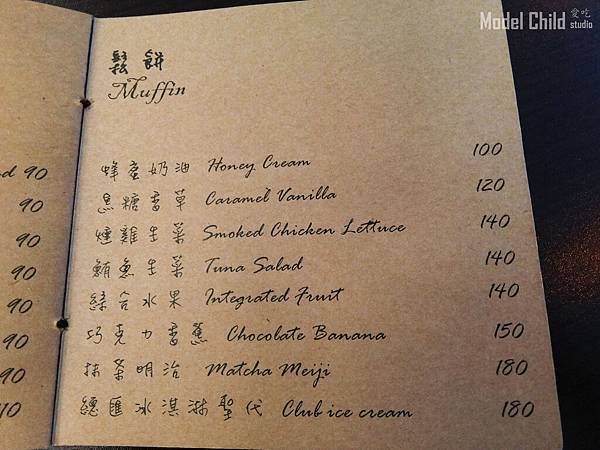 Model Child 愛吃 studio
鬆餅
Muffin
蜂蜜奶油 Honey Cream 100
焦糖香草 Caramel Vanilla 120
燻雞生菜 Smoked Chicken Lettuce 140
鮪魚生菜 Tuna Salad 140
綜合水果 Integrated Fruit 140
巧克力香蕉 Chocolate Banana 150
抹茶明治 Matcha Meiji 180
總匯冰淇淋聖代 Club ice cream 180
90
90
90
90
90
90
90